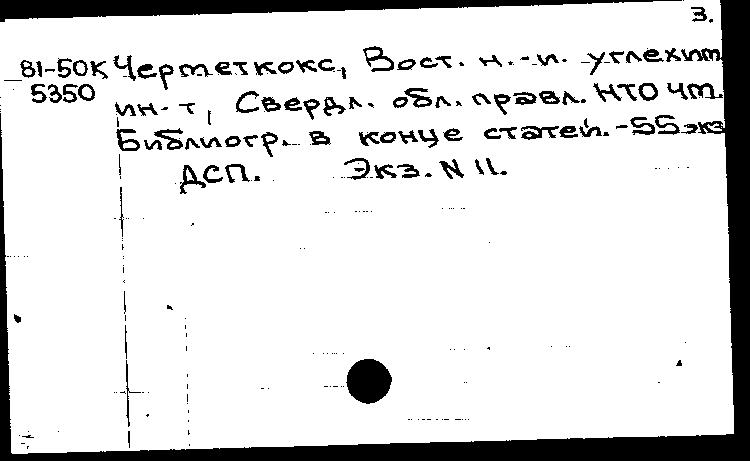 3.
81-50К Черметкокс, Вост. н.-и. углехим.
5350 ин-т, Свердл. обл. правл. НТО Чм.
Библиогр. в конце статей. -55 экз
ДСП. Экз. N 11.